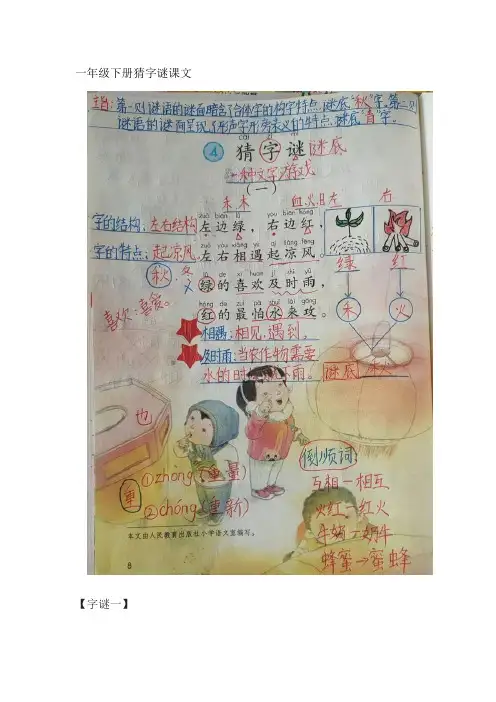 一年级下册猜字谜课文
主旨:第一则谜语的谜面暗含了合体字的构字特点,谜底"秋"字。第二则
谜语的谜面呈现了形声字形旁表义的特点,谜底"青"字。
cāi zì mí
4 猜字谜 谜底
一种文字游戏
(一)
禾木 血火日左 右
字的结构:左右结构
zuǒ biān lǜ yòu biān hóng
左边绿,右边红,
字的特点:起凉风
zuǒ yòu xiāng yù qǐ liáng fēng
左右相遇起凉风。
绿 红
秋 冬
lǜ de xǐ huan jí shí yǔ
绿的喜欢及时雨,
喜欢:喜爱。
hóng de zuì pà shuǐ lái gōng
红的最怕水来攻。
禾 火
相遇:相见,遇到。
及时雨:当农作物需要
水的时候下雨。
谜底
也
倒顺词:
重
①zhòng(重量)
②chóng(重新)
互相-相互
火红-红火
牛奶-奶牛
蜂蜜→蜜蜂
本文由人民教育出版社小学语文室编写。
8
【字谜一】